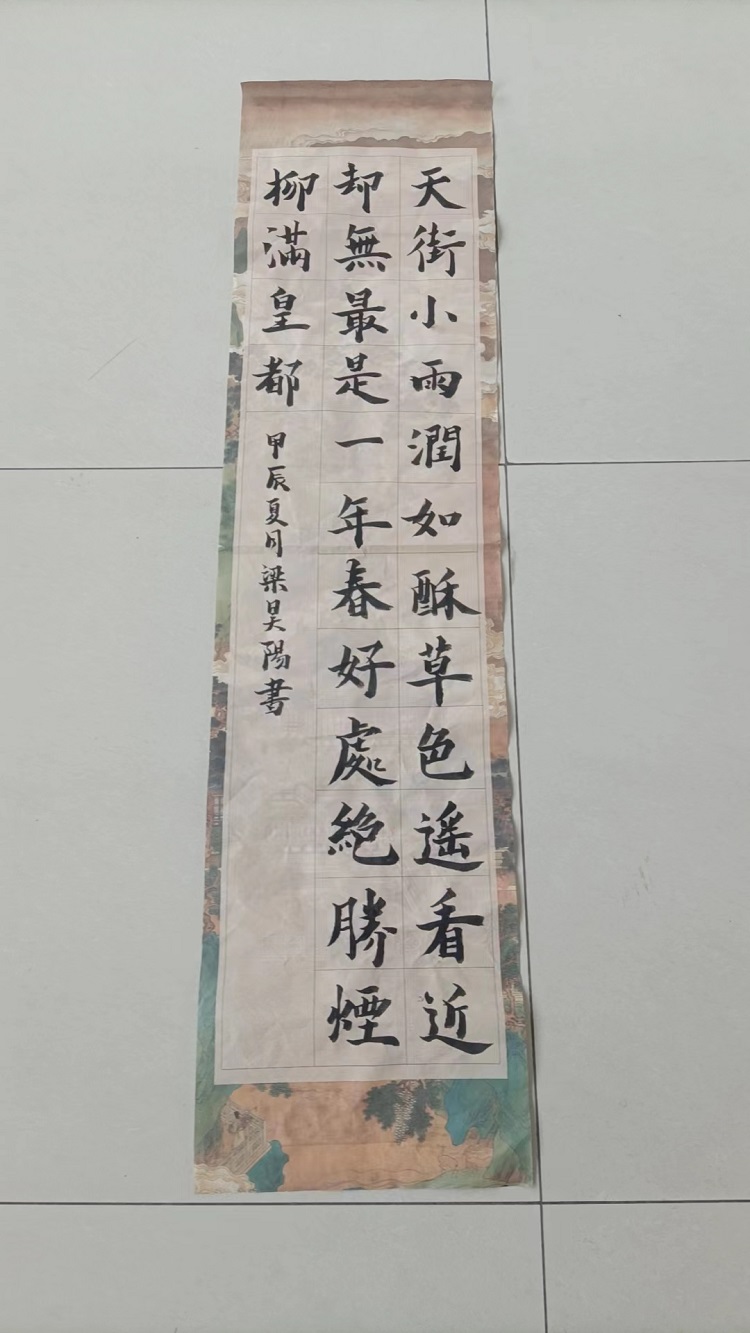 天街小雨潤如酥草色遥看近
却無最是一年春好處絶勝煙
柳滿皇都
甲辰夏月梁昊陽書